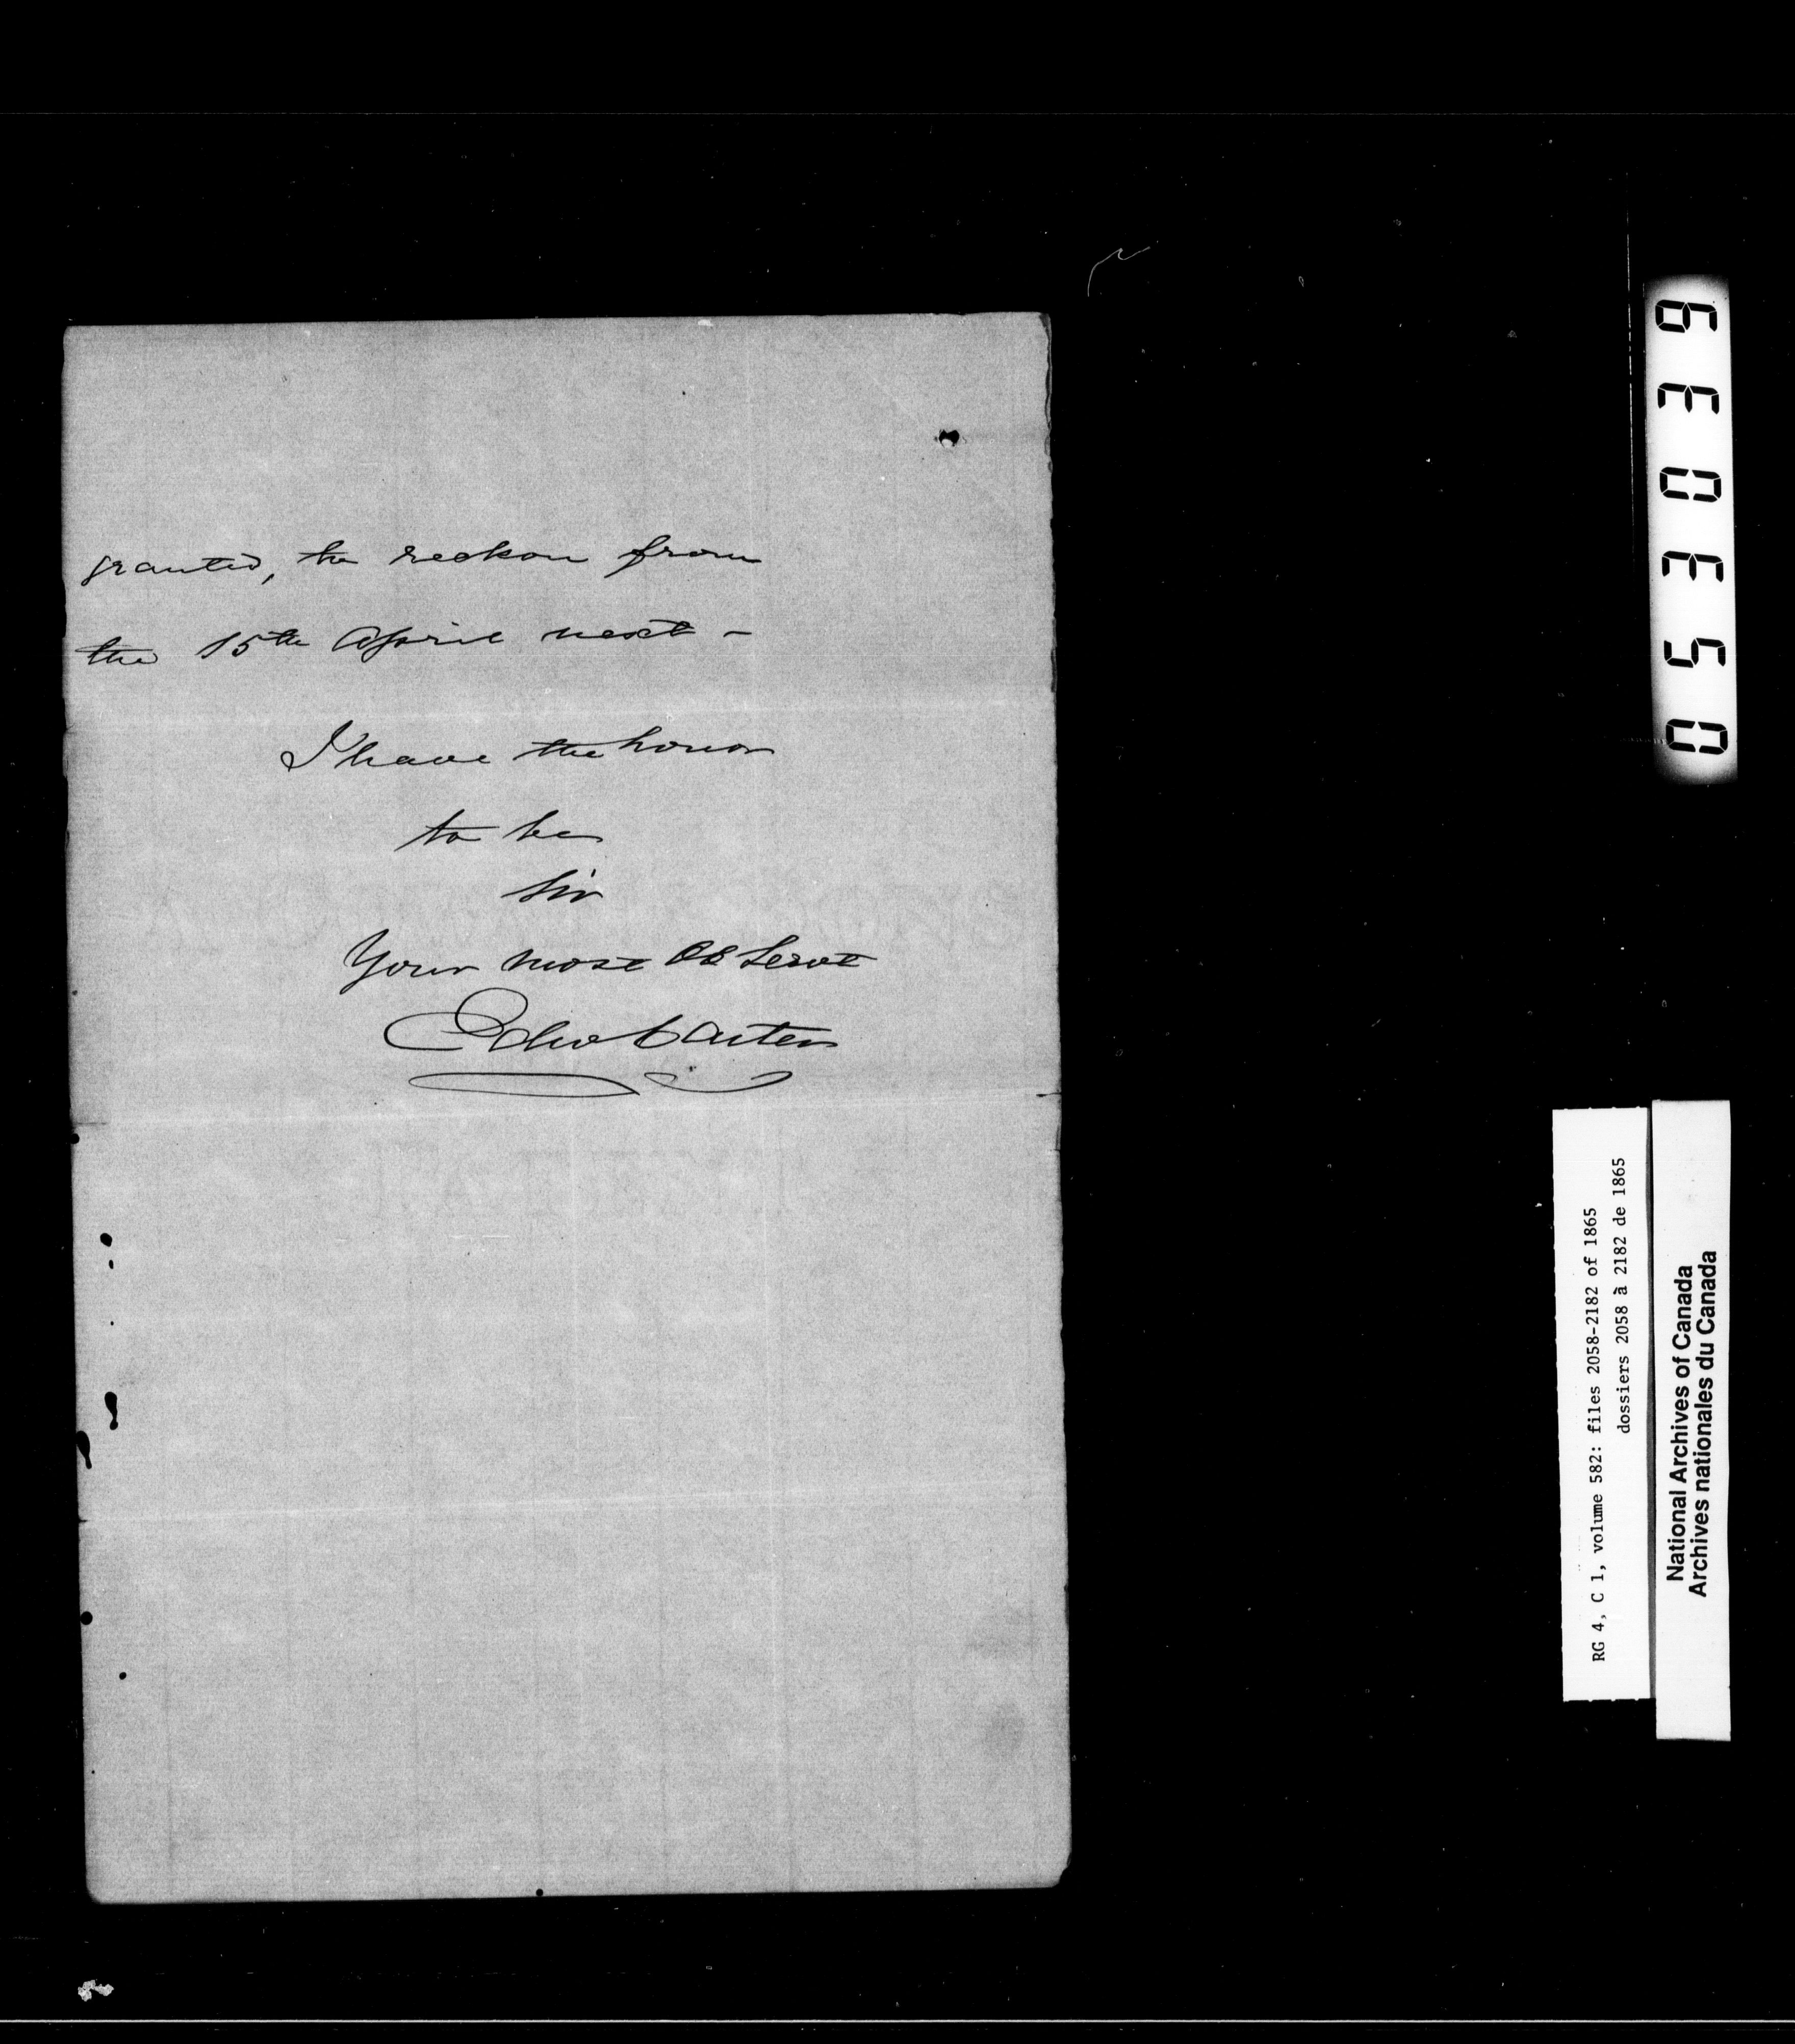 granted, to reckon from
the 15th April next –
I have the honor
to be
Sir
Your most Ob Servt
Edw Carter
053039
RG 4, C 1, volume 582: files 2058-2182 of 1865
dossiers 2058 à 2182 de 1865
National Archives of Canada
Archives nationales du Canada